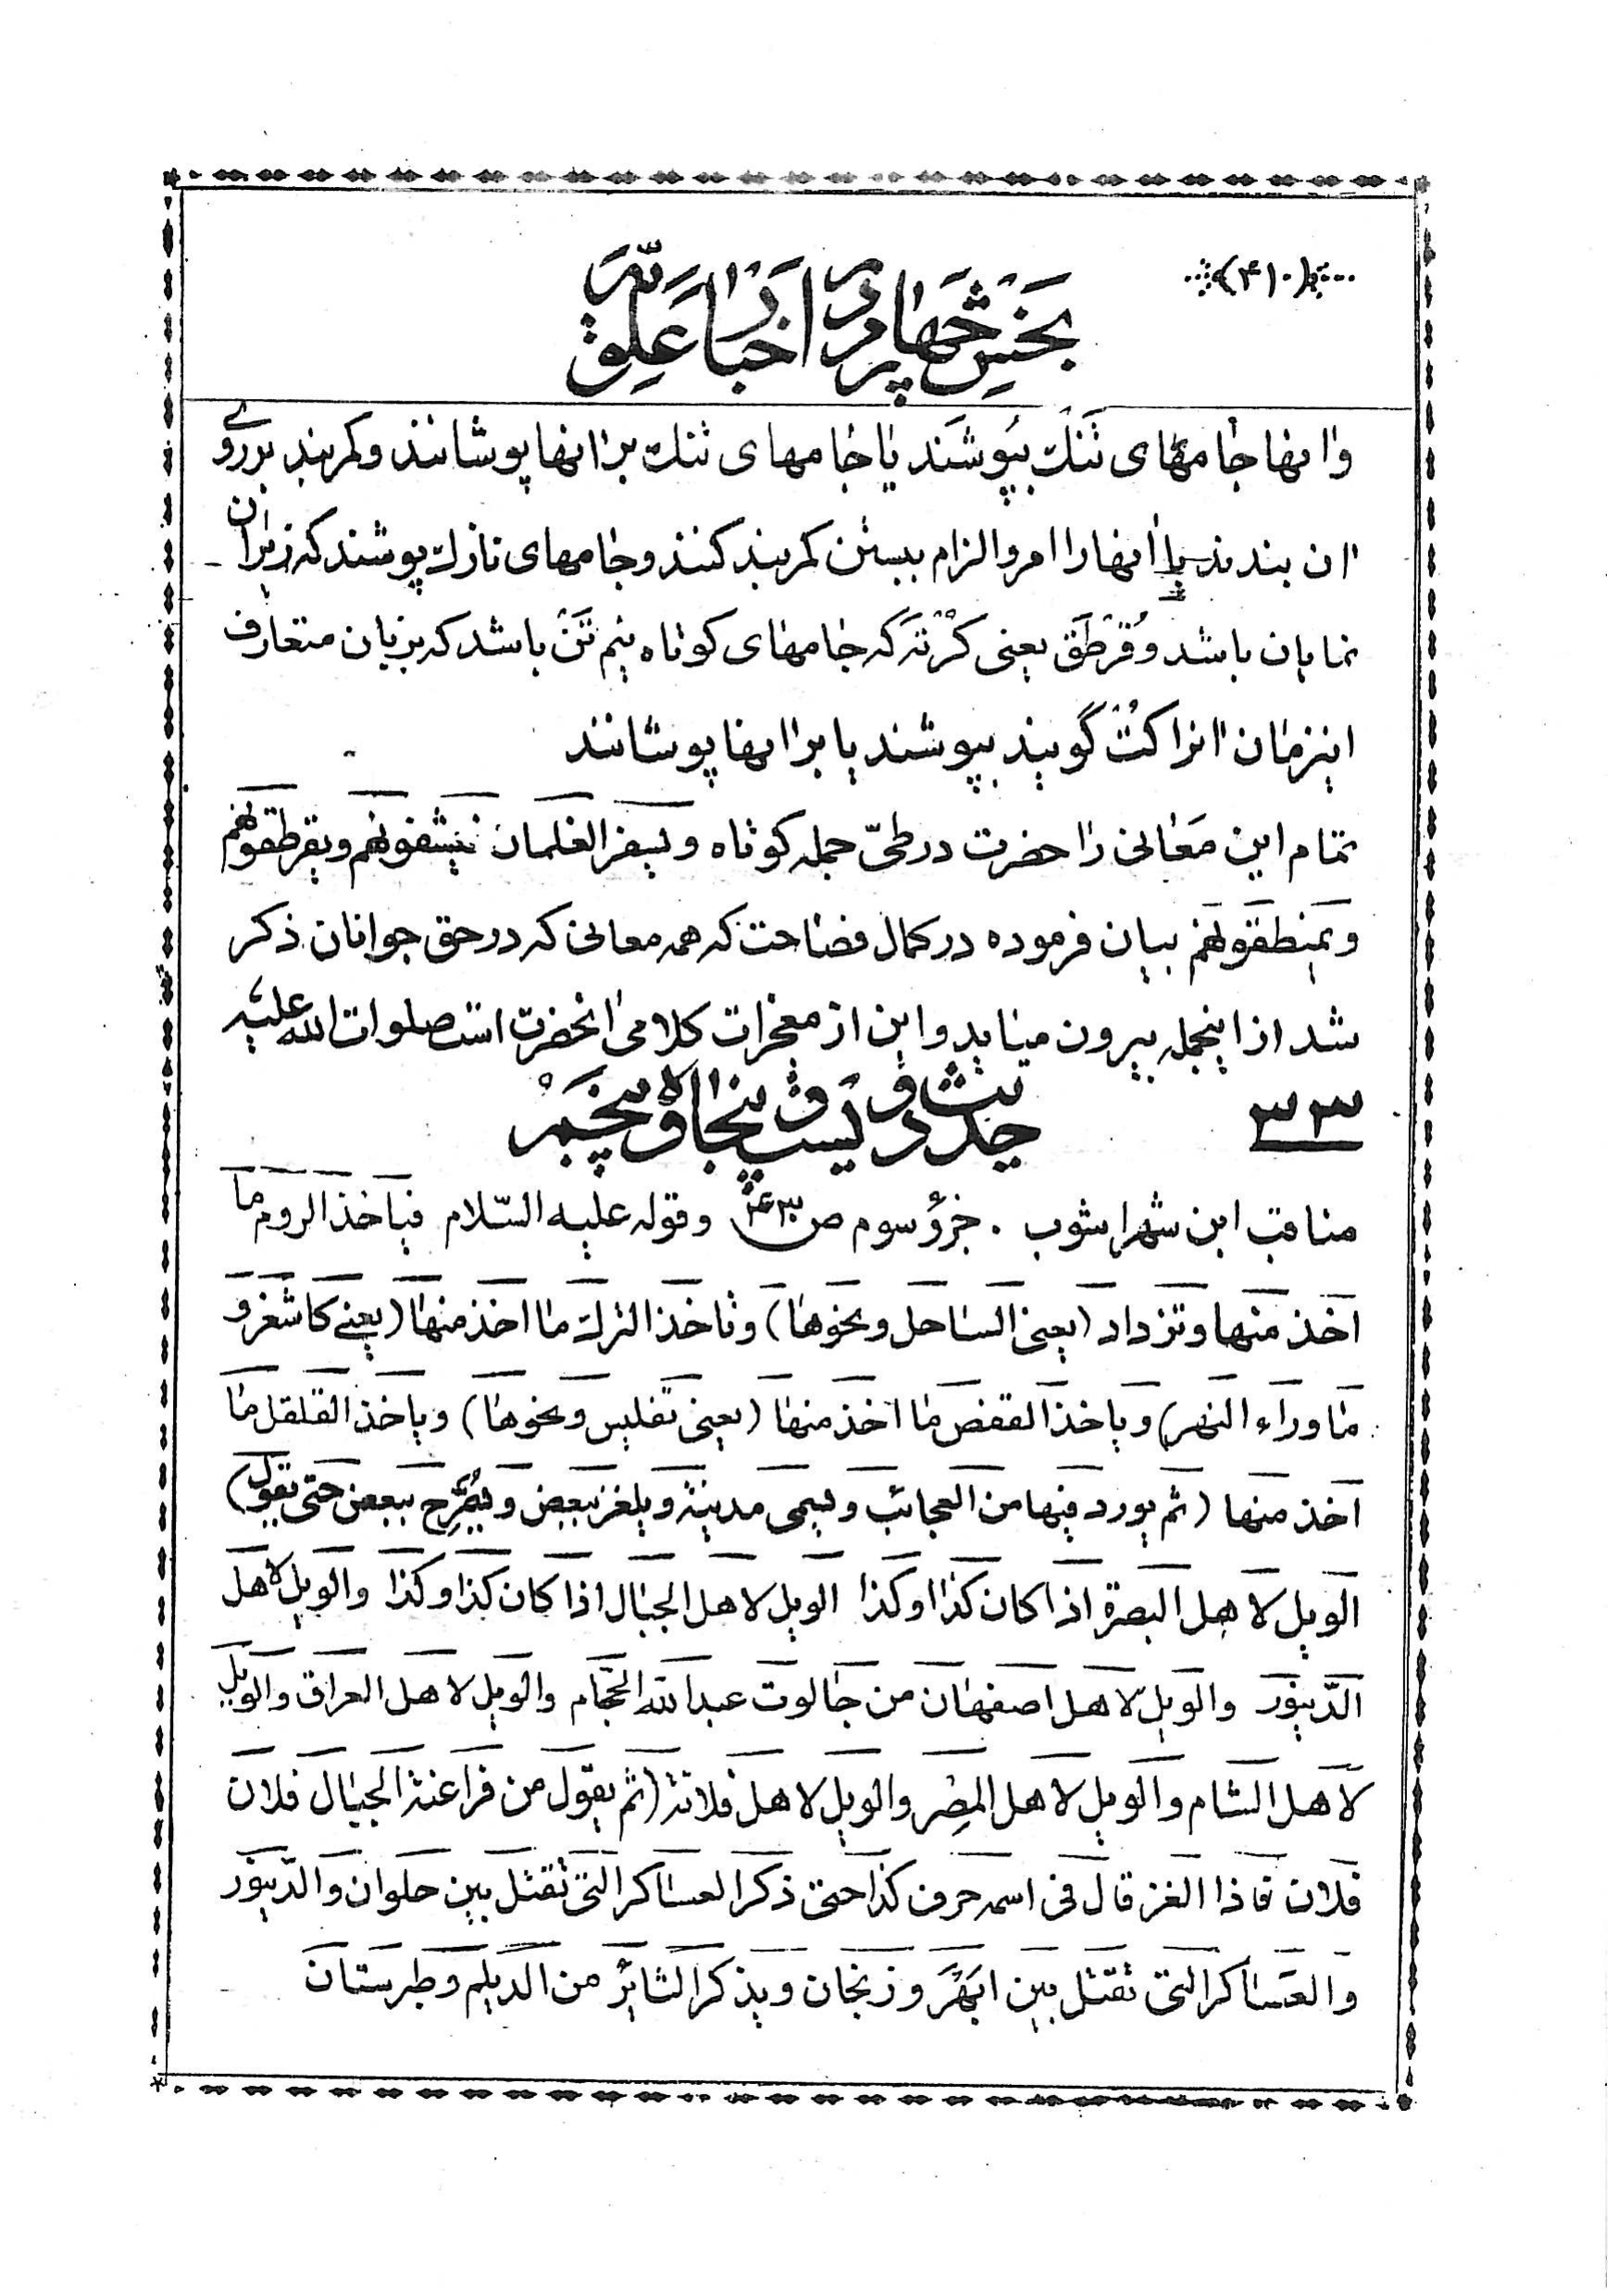 (۴۱۰)
بخش چهارم در اخبار علویّه
و آنها جامهٔهای تَنگ بپوشَند یا جامهای تنگ برانها پوشانند و کمربند بر روی
ان بندند یا انها را امر و الزام ببستن کمربند کنند و جامهای نازک پوشند که زیران
نمایان باشد وَ قُرطَق یعنی کُرْتَه که جامهای کوتاه نیم تَنَ باشد که بزبان متعارف
اینزمان انرا کُتْ گویند بپوشند یا برانها پوشانند
تمام این مَعانی را حضرت در طیّ جمله کوتاه و یسفر الغلمان فیشفونهم و یقرطقونهم
و یمنطقونهم بیان فرموده در کمال فصاحت که همه معانی که در حق جوانان ذکر
شد از اینجمله بیرون میاید و این از معجزات کلامی انحضرت است صلوات الله علیه
۳۳ حدیث دویست و پنجاه و پنجم
مناقب ابن شهراشوب . جزؤ سوم ص ۴۳۰ و قوله علیه السّلام فیأخذ الروم ما
اخذ منها و تزداد (یعنی السّاحل و نحوها) و تاخذ الترک ما اخذ منها (یعنی کاشغر و
ما وراء النهر) و یاخذ القفص ما اخذ منها (یعنی تفلیس و نحوها) و یاخذ القلقل ما
اخذ منها (ثم یورد فیها من العجائب و یسمی مدینة و یلغز ببعض و یُصَرِّح ببعض حتی یقول)
الویل لاهل البصرة اذا کان کذا و کذا الویل لاهل الجبال اذا کان کذا و کذا و الویل لاهل
الدّینور و الویل لاهل اصفهان من جالوت عبدالله الحجّام و الویل لاهل العراق و الویل
لاهل الشام و الویل لاهل المصِر و الویل لاهل فلانة (ثم یقول من فراعنة الجبال فلان
فلان فاذا الغز قال فی اسمه حرف کذا حتی ذکر العساکر التی تقتل بین حلوان و الدّینور
و العساکر التی تقتل بین ابهَر و زنجان و یذکر الثائر من الدیلم و طبرستان